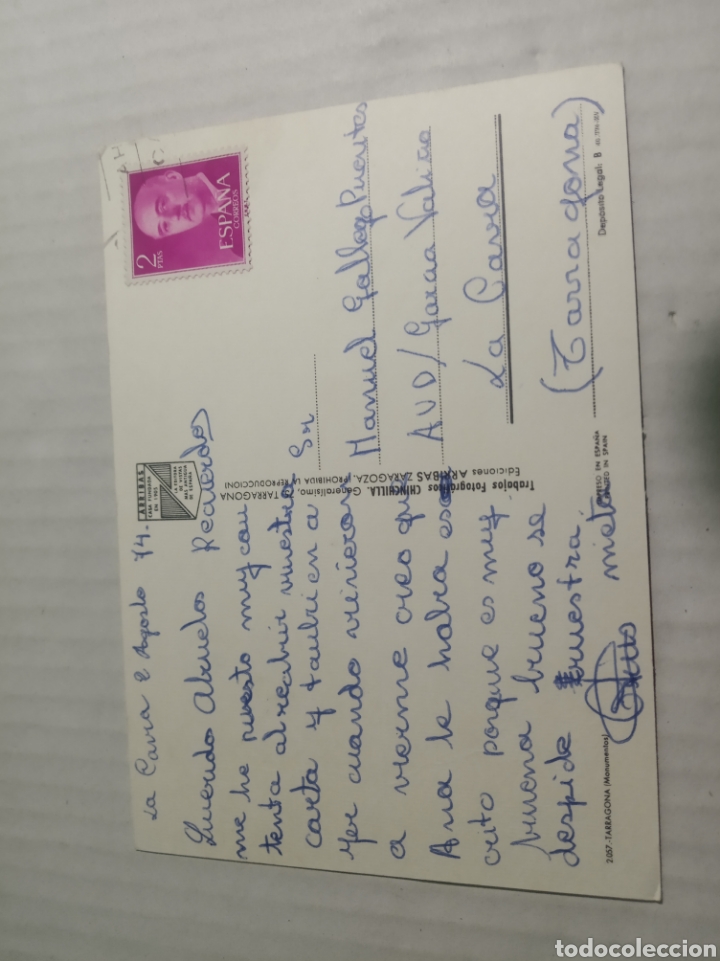 La Cava 2 Agosto 74.-
Querido Abuelos Recuerdos
me he puesto muy con
tenta al recibir vuestra
carta y tanbien a
yer cuando vinieron
a verme creo que
Ana le habra es
crito porque es muy
buena bueno se
despide vuestra
nieta
ARRIBAS
CASA FUNDADA
EN 1905
LA EDITORA
DE VISTAS
MAS ANTIGUA
DE ESPAÑA
Trabajos Fotográficos CHINCHILLA. Generalísimo, TARRAGONA
Ediciones ARRIBAS ZARAGOZA. (PROHIBIDA LA REPRODUCCION)
2 PTAS
ESPAÑA
CORREOS
Sr
Manuel Gallego Puentes
AVD/ Garcia Valiño
La Cava
(Tarragona)
2.057.-TARRAGONA (Monumentos)
IMPRESO EN ESPAÑA
PRINTED IN SPAIN
Deposito Legal: B
todocoleccion